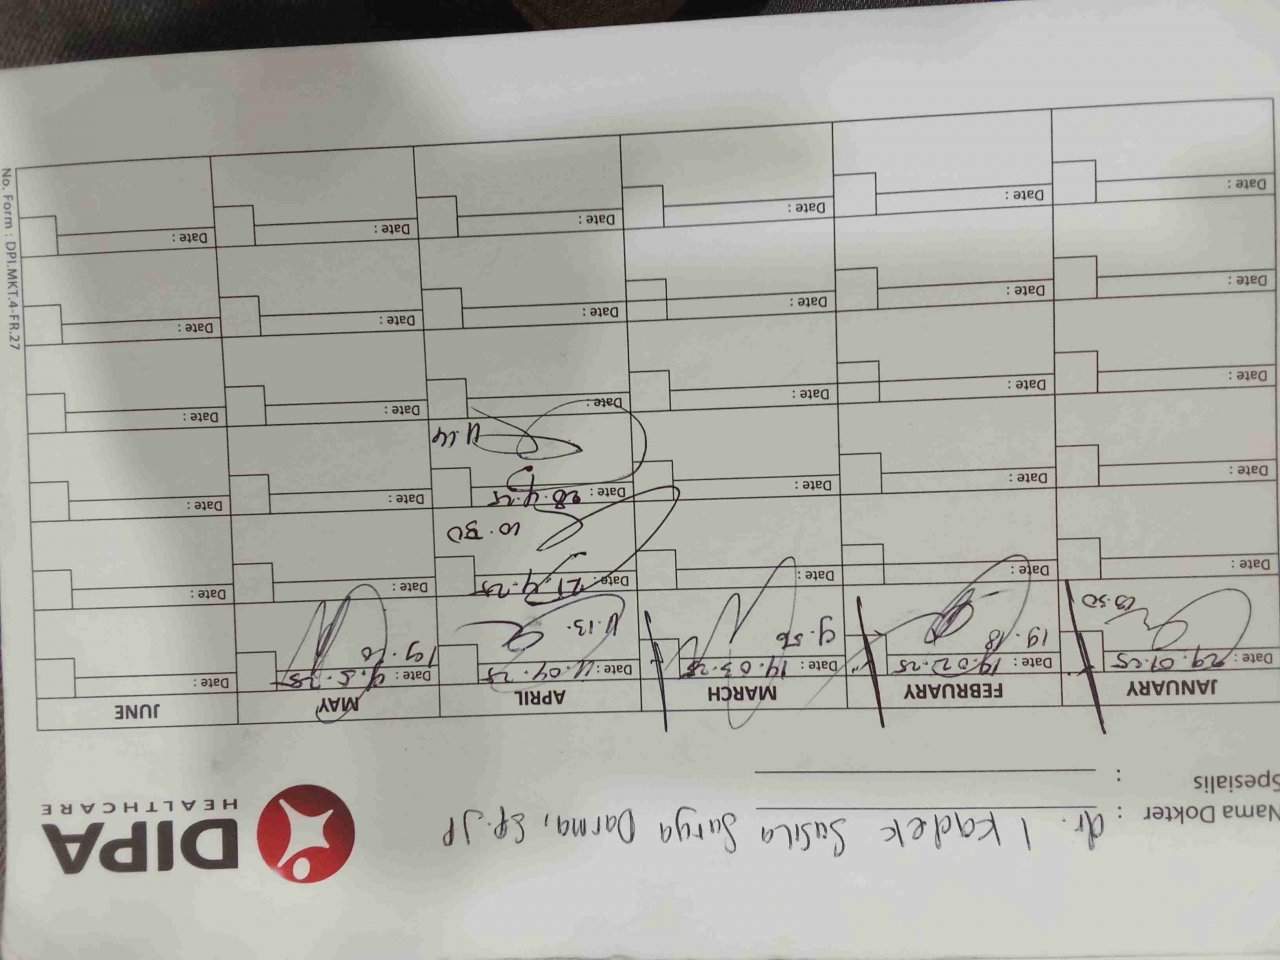 DIPA
HEALTHCARE
Nama Dokter : dr. I Kadek Susila Surya Darma, Sp.JP
Spesialis :
JANUARY FEBRUARY MARCH APRIL MAY JUNE
Date: 29.01.25 Date: 19.02.25 Date: 14.03.25 Date: 11.04.25 Date: 9.5.25 Date:
19.18 9.56 11.13
Date: Date: Date: Date: 21.4.25 Date: Date:
10.30
Date: Date: Date: Date: 28.4.25 Date: Date:
11.14
Date: Date: Date: Date: Date: Date:
Date: Date: Date: Date: Date: Date:
Date: Date: Date: Date: Date: Date:
No. Form : DPI.MKT.4-FR.27